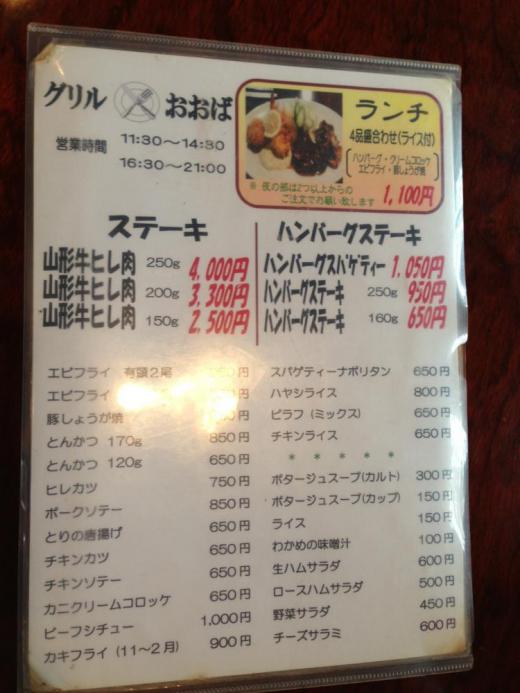 グリル おおば
営業時間 11:30～14:30
16:30～21:00
ランチ
4品盛合わせ(ライス付)
ハンバーグ・クリームコロッケ
エビフライ・豚しょうが焼
※ 夜の部は2つ以上からの
ご注文でお願い致します
1,100円
ステーキ
山形牛ヒレ肉 250g 4,000円
山形牛ヒレ肉 200g 3,300円
山形牛ヒレ肉 150g 2,500円
ハンバーグステーキ
ハンバーグスパゲティー 1,050円
ハンバーグステーキ 250g 950円
ハンバーグステーキ 160g 650円
エビフライ 有頭2尾 円
エビフライ 円
豚しょうが焼 円
とんかつ 170g 850円
とんかつ 120g 650円
ヒレカツ 750円
ポークソテー 850円
とりの唐揚げ 650円
チキンカツ 650円
チキンソテー 650円
カニクリームコロッケ 650円
ビーフシチュー 1,000円
カキフライ (11～2月) 900円
スパゲティーナポリタン 650円
ハヤシライス 800円
ピラフ (ミックス) 650円
チキンライス 650円
* * * * *
ポタージュスープ(カルト) 300円
ポタージュスープ(カップ) 150円
ライス 150円
わかめの味噌汁 100円
生ハムサラダ 600円
ロースハムサラダ 500円
野菜サラダ 450円
チーズサラミ 600円